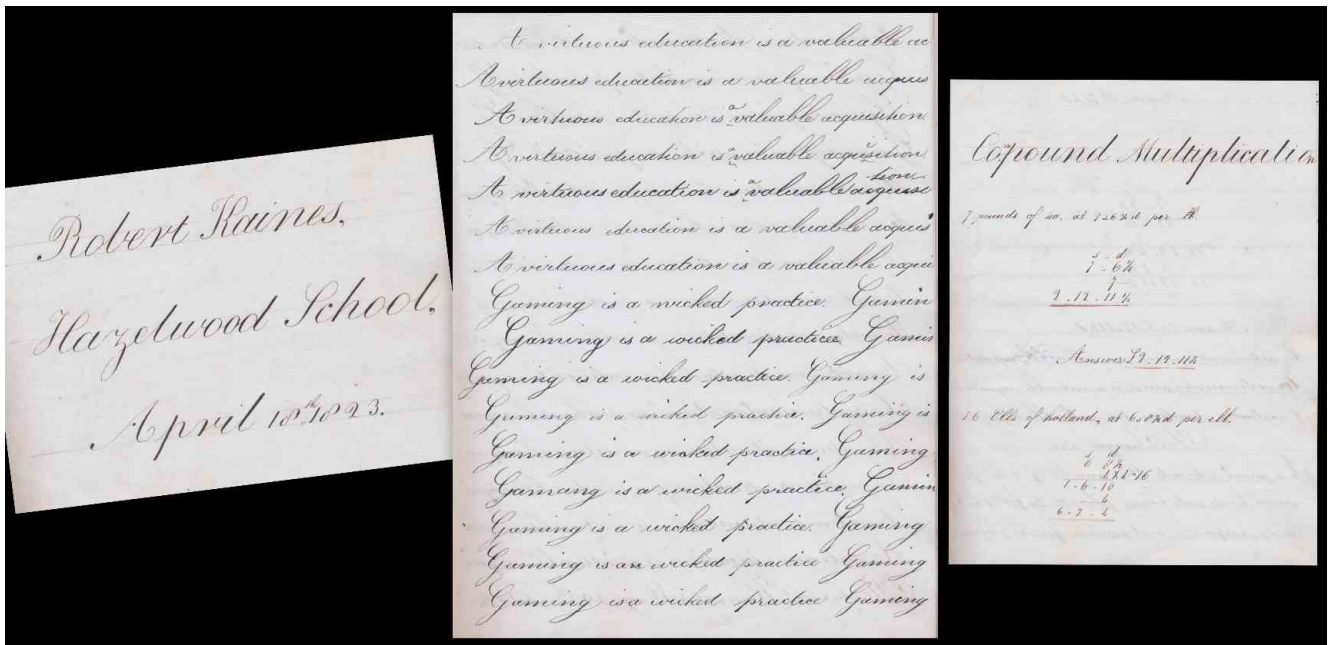 Robert Kaines,
Hazelwood School,
April 18th 1823.
A virtuous education is a valuable ac
A virtuous education is a valuable acquis
A virtuous education is a valuable acquisition
A virtuous education is a valuable acquisition
A virtuous education is a valuable acquisi
tion
A virtuous education is a valuable acquis
A virtuous education is a valuable acquis
Gaming is a wicked practice. Gamin
Gaming is a wicked practice. Gamin
Gaming is a wicked practice. Gaming is
Gaming is a wicked practice. Gaming is
Gaming is a wicked practice. Gaming
Gamang is a wicked practice. Gamin
Gaming is a wicked practice. Gaming
Gaming is a wicked practice Gaming
Gaming is a wicked practice Gaming
Copound Multiplication
7 pounds of at per lb
s d
7
Answer £2.12.11¼
16 Ells of holland, at per ell.
s d
6 8½
4 X 4 = 16
1 - 6 - 10
4